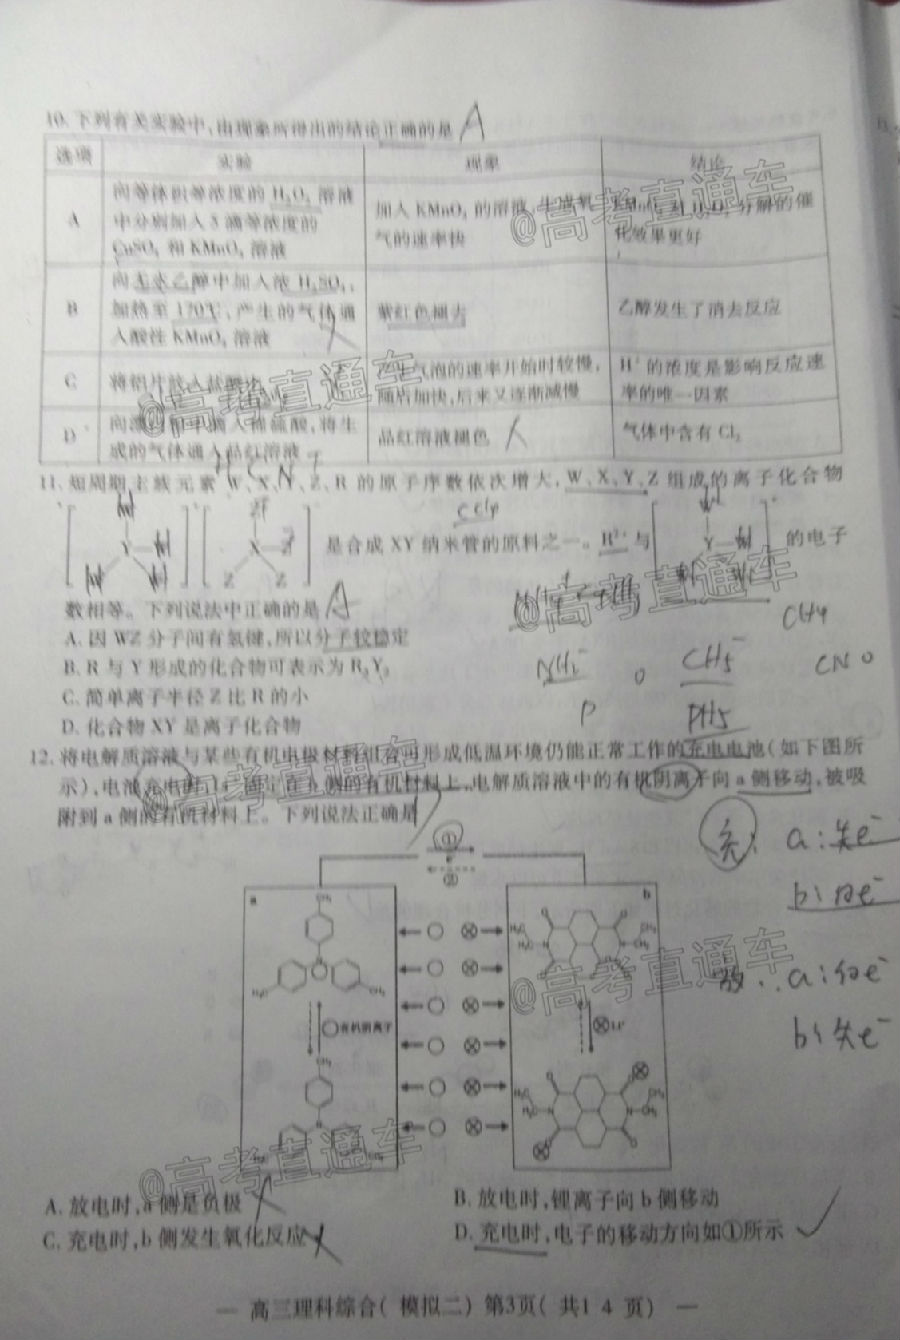 10. 下列有关实验中,由现象所得出的结论正确的是 A
选项 实验 现象 结论
A 向等体积等浓度的 H₂O₂ 溶液中分别加入 5 滴等浓度的 CuSO₄ 和 KMnO₄ 溶液
加入 KMnO₄ 的溶液,生成氧气的速率快
分解的催化效果更好
B 向无水乙醇中加入浓 H₂SO₄,加热至 170℃,产生的气体通入酸性 KMnO₄ 溶液
紫红色褪去
乙醇发生了消去反应
C 将铝片放入盐酸中
产生气泡的速率开始时较慢,随后加快,后来又逐渐减慢
H⁺ 的浓度是影响反应速率的唯一因素
D 稀硫酸,将生成的气体通入品红溶液
品红溶液褪色
气体中含有 Cl₂
11. 短周期主族元素 W、X、Y、Z、R 的原子序数依次增大, W、X、Y、Z 组成的离子化合物
是合成 XY 纳米管的原料之一。R³⁺ 与
的电子
数相等。下列说法中正确的是 A
CH4
A. 因 WZ 分子间有氢键,所以分子较稳定
B. R 与 Y 形成的化合物可表示为 R₃Y₂
C. 简单离子半径 Z 比 R 的小
D. 化合物 XY 是离子化合物
NH₂⁻ O CH5⁻ CNO
P PH5
12. 将电解质溶液与某些有机电极材料组合可形成低温环境仍能正常工作的充电电池(如下图所
示),电池充电时,Li⁺ 固定在 b 侧的有机材料上,电解质溶液中的有机阴离子向 a 侧移动,被吸
附到 a 侧的有机材料上。下列说法正确是
充: a:失e⁻
b:得e⁻
放: a:得e⁻
b:失e⁻
①
e⁻
②
a
b
CH₃
H₃C
CH₃
有机阴离子
Li⁺
A. 放电时,a 侧是负极
B. 放电时,锂离子向 b 侧移动
C. 充电时,b 侧发生氧化反应
D. 充电时,电子的移动方向如①所示
— 高三理科综合( 模拟二) 第3页( 共14 页) —
@高考直通车
@高考直通车
@高考直通车
@高考直通车
@高考直通车
@高考直通车